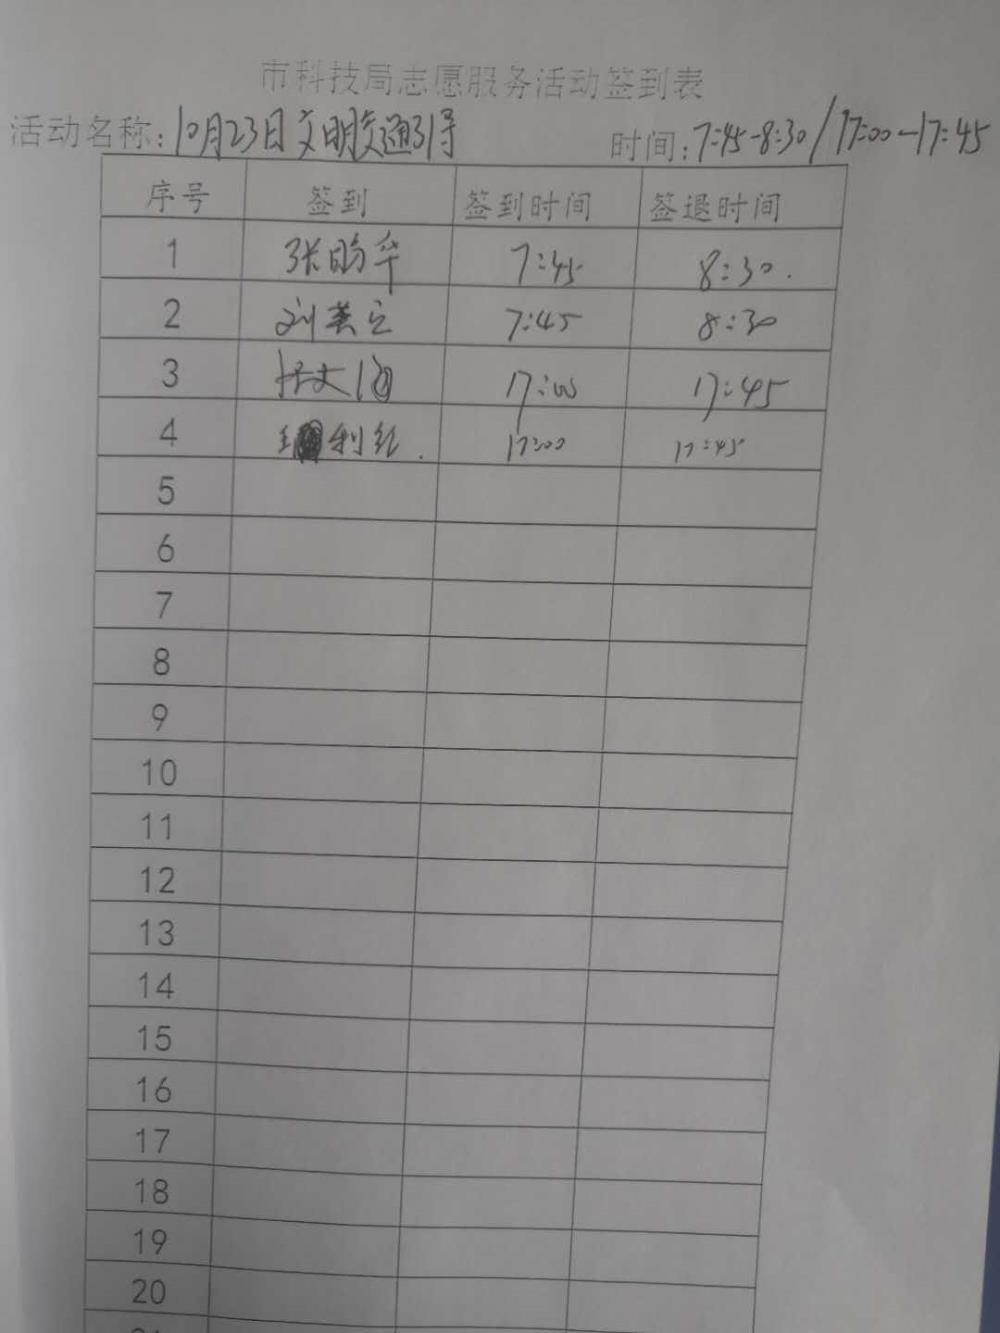 市科技局志愿服务活动签到表
活动名称:10月23日文明交通引导 时间:7:45-8:30/17:00-17:45
序号 签到 签到时间 签退时间
1 张 华 7:45 8:30.
2 刘 7:45 8:30
3 17:00 17:45
4 王利红. 17:00 17:45
5
6
7
8
9
10
11
12
13
14
15
16
17
18
19
20